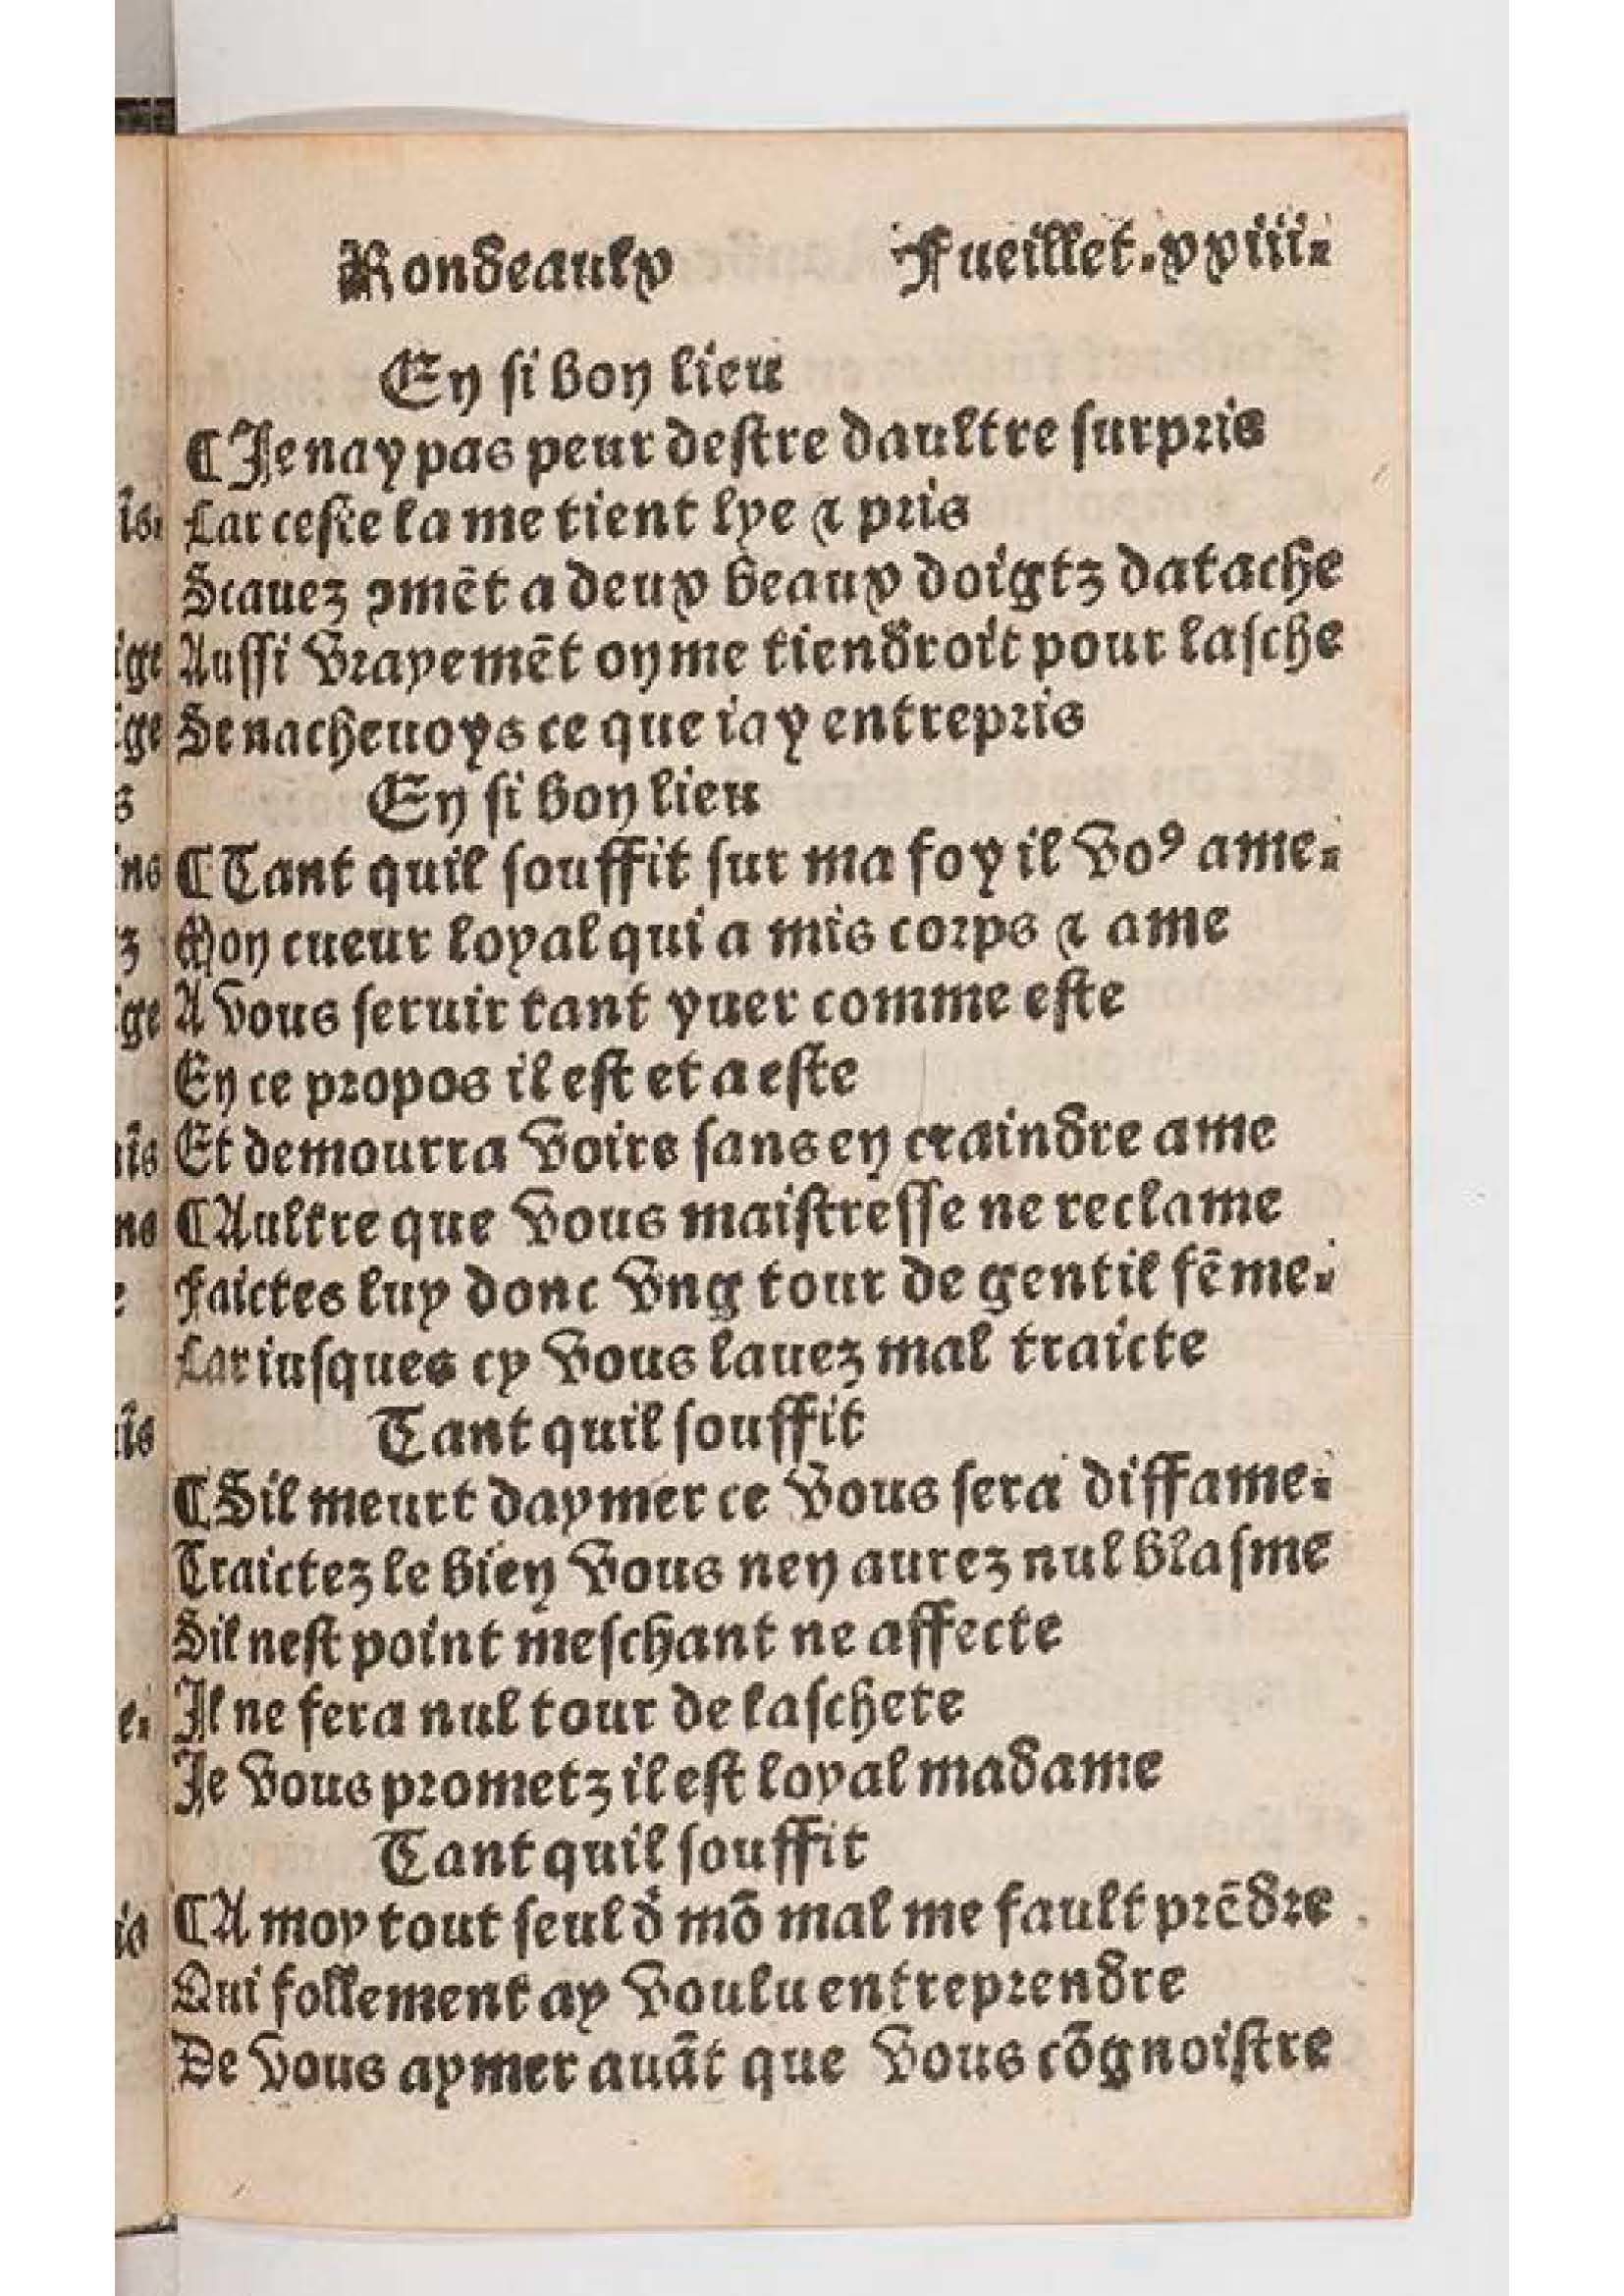 Rondeaulx Fueillet.xxiii.
En si bon lieu
¶Je nay pas peur destre daultre surpris
Car ceste la me tient lye ⁊ pris
Scauez ꝯmēt a deux beaux doigtz datache
Aussi vrayemēt on me tiendroit pour lasche
Se nacheuoys ce que iay entrepris
En si bon lieu
¶Tant quil souffit sur ma foy il voꝰ ame.
Mon cueur loyal qui a mis corps ⁊ ame
A vous seruir tant yuer comme este
En ce propos il est et a este
Et demourra voire sans en craindre ame
¶Aultre que vous maistresse ne reclame
Faictes luy donc vng tour de gentil fēme.
Car iusques cy vous lauez mal traicte
Tant quil souffit
¶Sil meurt daymer ce vous sera diffame.
Traictez le bien vous nen aurez nul blasme
Sil nest point meschant ne affecte
Il ne fera nul tour de laschete
Je vous prometz il est loyal madame
Tant quil souffit
¶A moy tout seul d̄ mō mal me fault prēdre
Qui follement ay voulu entreprendre
De vous aymer auāt que vous cōgnoistre